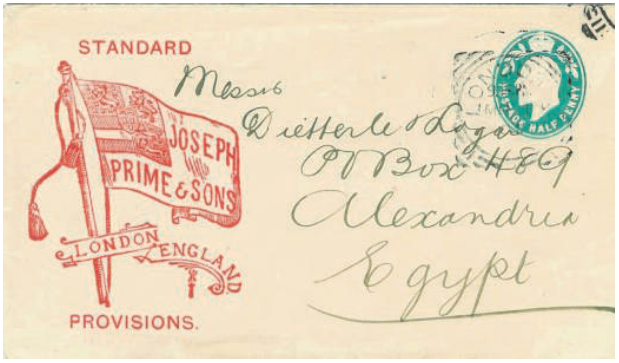 STANDARD
JOSEPH
PRIME & SONS
LONDON
ENGLAND.
PROVISIONS.
POSTAGE HALF PENNY
Messrs
Dietterle & Logar
PO Box 489
Alexandria
Egypt